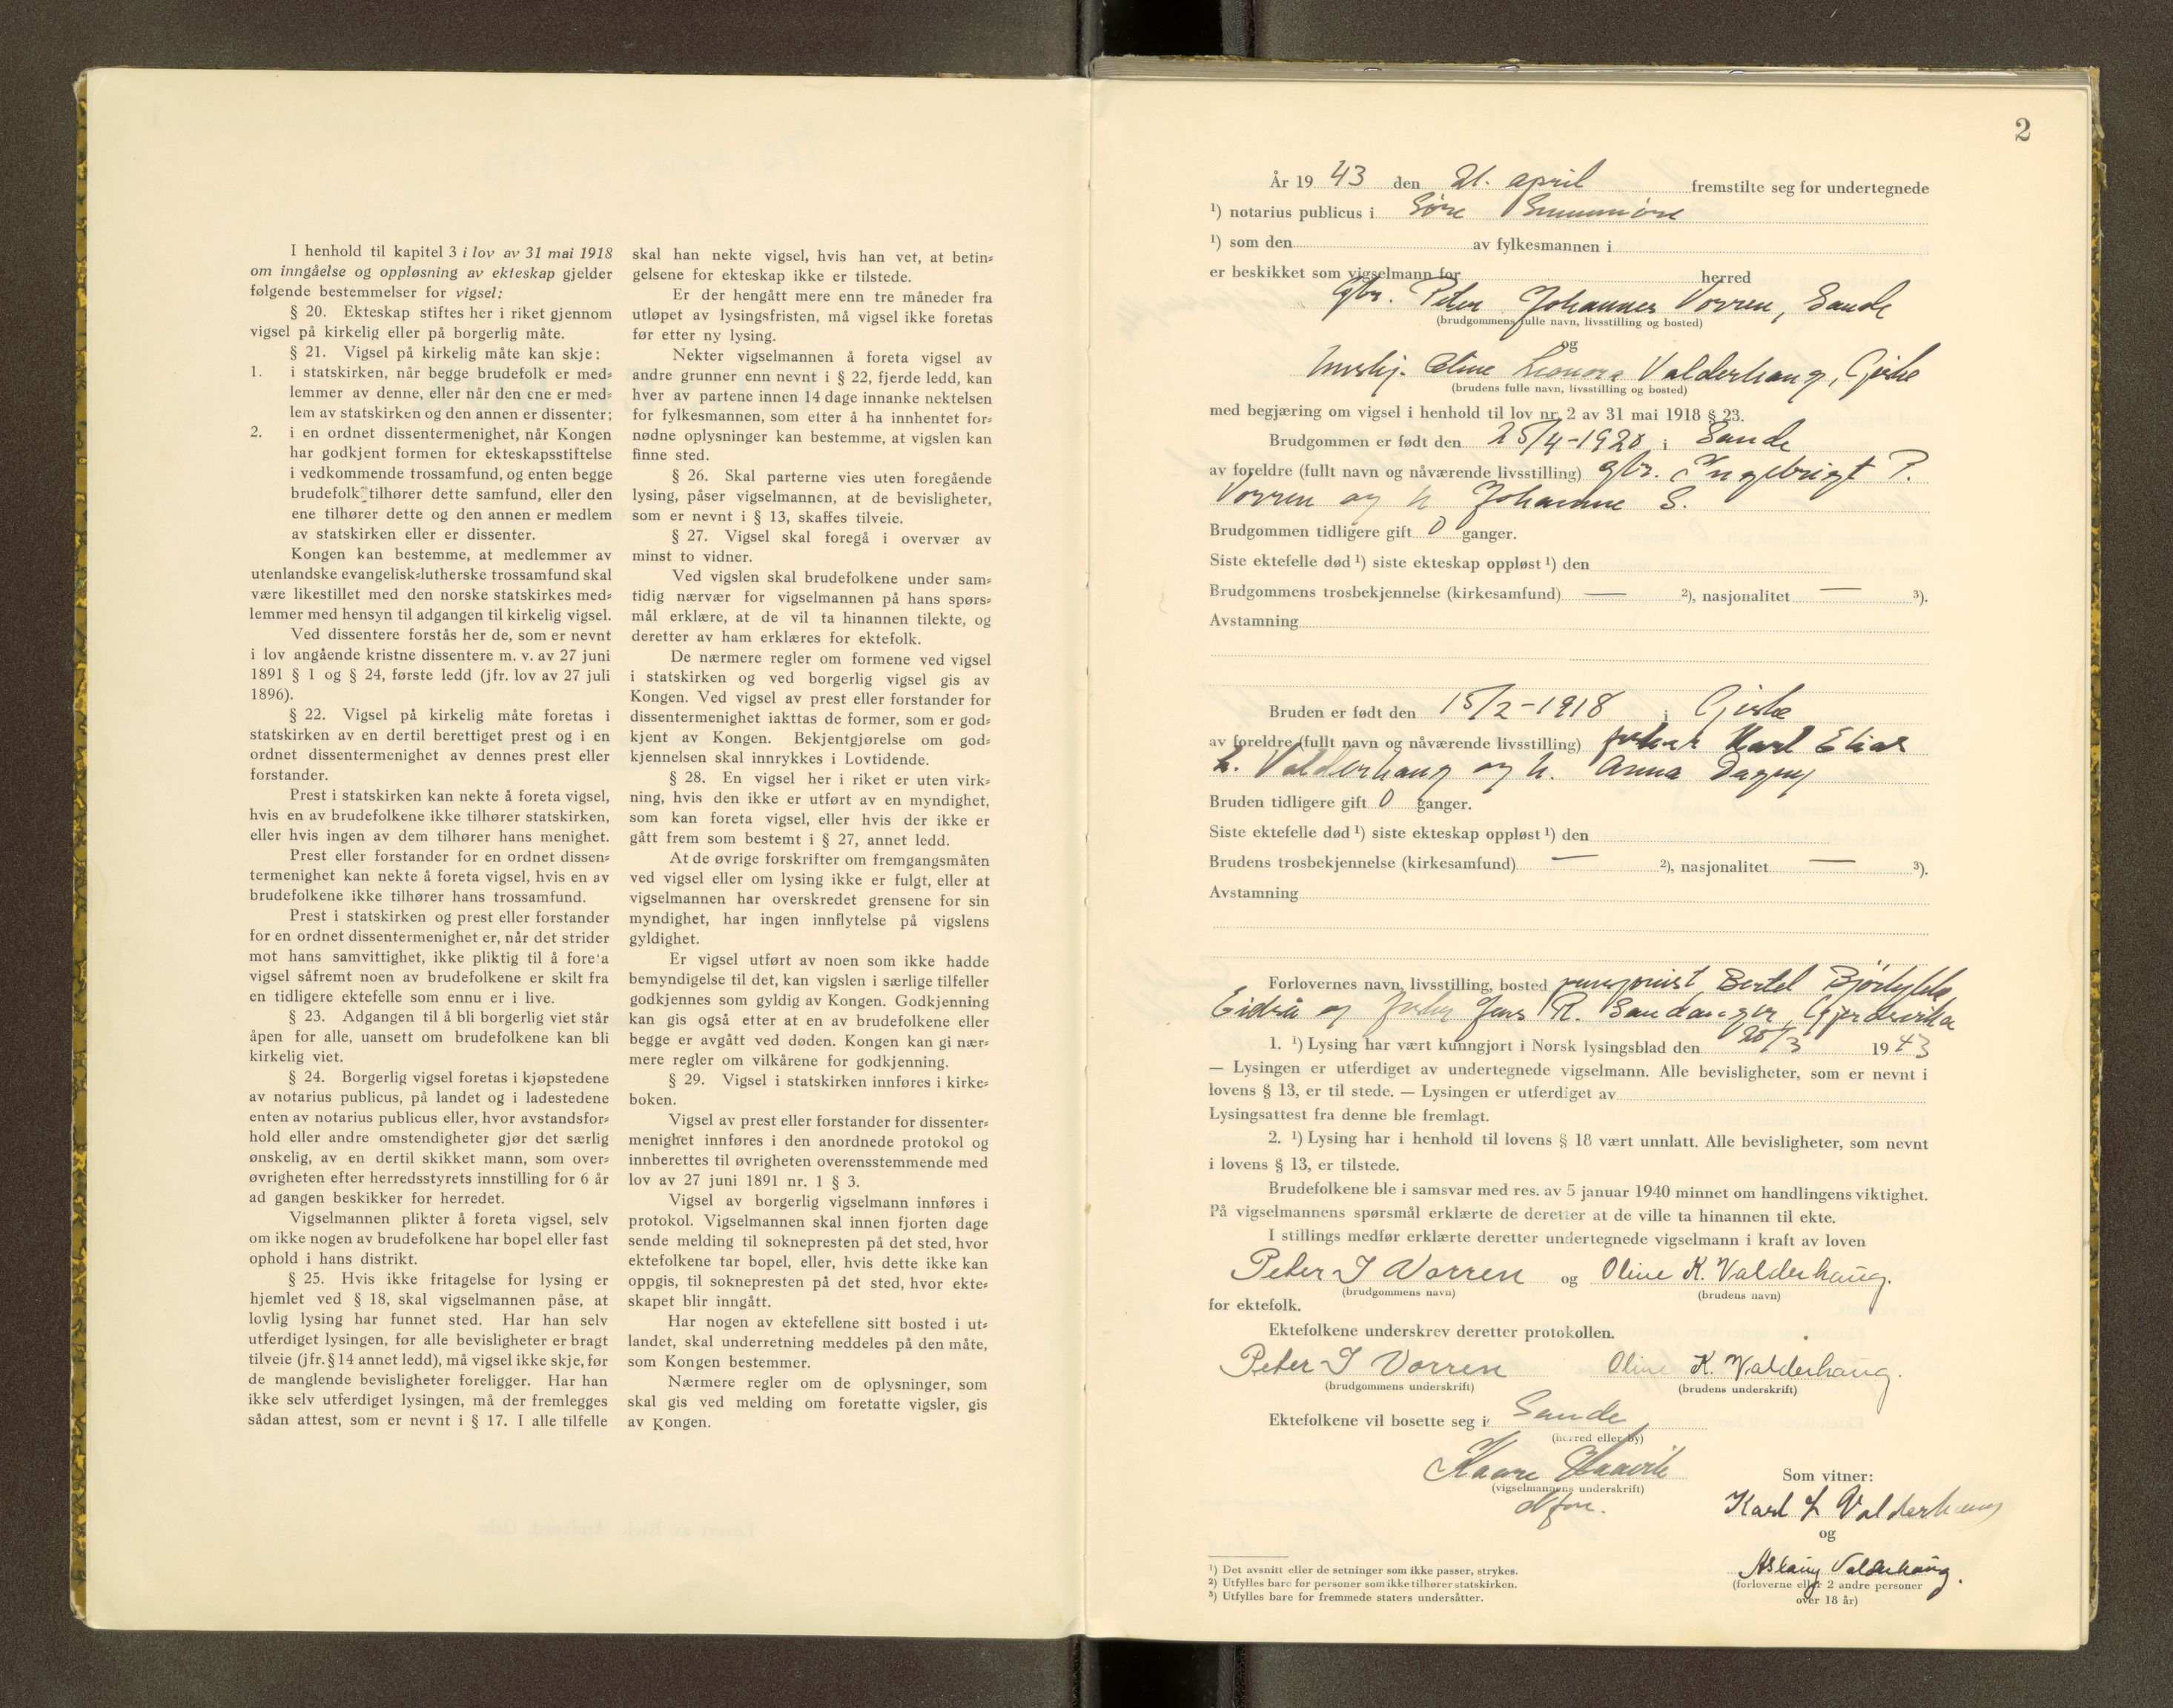 I henhold til kapitel 3 i lov av 31 mai 1918
om inngåelse og oppløsning av ekteskap gjelder
følgende bestemmelser for vigsel:
§ 20. Ekteskap stiftes her i riket gjennom
vigsel på kirkelig eller på borgerlig måte.
§ 21. Vigsel på kirkelig måte kan skje:
1. i statskirken, når begge brudefolk er med=
lemmer av denne, eller når den ene er med=
lem av statskirken og den annen er dissenter;
2. i en ordnet dissentermenighet, når Kongen
har godkjent formen for ekteskapsstiftelse
i vedkommende trossamfund, og enten begge
brudefolk tilhører dette samfund, eller den
ene tilhører dette og den annen er medlem
av statskirken eller er dissenter.
Kongen kan bestemme, at medlemmer av
utenlandske evangelisk=lutherske trossamfund skal
være likestillet med den norske statskirkes med=
lemmer med hensyn til adgangen til kirkelig vigsel.
Ved dissentere forstås her de, som er nevnt
i lov angående kristne dissentere m. v. av 27 juni
1891 § 1 og § 24, første ledd (jfr. lov av 27 juli
1896).
§ 22. Vigsel på kirkelig måte foretas i
statskirken av en dertil berettiget prest og i en
ordnet dissentermenighet av dennes prest eller
forstander.
Prest i statskirken kan nekte å foreta vigsel,
hvis en av brudefolkene ikke tilhører statskirken,
eller hvis ingen av dem tilhører hans menighet.
Prest eller forstander for en ordnet dissen=
termenighet kan nekte å foreta vigsel, hvis en av
brudefolkene ikke tilhører hans trossamfund.
Prest i statskirken og prest eller forstander
for en ordnet dissentermenighet er, når det strider
mot hans samvittighet, ikke pliktig til å foreta
vigsel såfremt noen av brudefolkene er skilt fra
en tidligere ektefelle som ennu er i live.
§ 23. Adgangen til å bli borgerlig viet står
åpen for alle, uansett om brudefolkene kan bli
kirkelig viet.
§ 24. Borgerlig vigsel foretas i kjøpstedene
av notarius publicus, på landet og i ladestedene
enten av notarius publicus eller, hvor avstandsfor=
hold eller andre omstendigheter gjør det særlig
ønskelig, av en dertil skikket mann, som over=
øvrigheten efter herredsstyrets innstilling for 6 år
ad gangen beskikker for herredet.
Vigselmannen plikter å foreta vigsel, selv
om ikke nogen av brudefolkene har bopel eller fast
ophold i hans distrikt.
§ 25. Hvis ikke fritagelse for lysing er
hjemlet ved § 18, skal vigselmannen påse, at
lovlig lysing har funnet sted. Har han selv
utferdiget lysingen, før alle bevisligheter er bragt
tilveie (jfr. § 14 annet ledd), må vigsel ikke skje, før
de manglende bevisligheter foreligger. Har han
ikke selv utferdiget lysingen, må der fremlegges
sådan attest, som er nevnt i § 17. I alle tilfelle
skal han nekte vigsel, hvis han vet, at betin=
gelsene for ekteskap ikke er tilstede.
Er der hengått mere enn tre måneder fra
utløpet av lysingsfristen, må vigsel ikke foretas
før etter ny lysing.
Nekter vigselmannen å foreta vigsel av
andre grunner enn nevnt i § 22, fjerde ledd, kan
hver av partene innen 14 dage innanke nektelsen
for fylkesmannen, som etter å ha innhentet for=
nødne oplysninger kan bestemme, at vigslen kan
finne sted.
§ 26. Skal parterne vies uten foregående
lysing, påser vigselmannen, at de bevisligheter,
som er nevnt i § 13, skaffes tilveie.
§ 27. Vigsel skal foregå i overvær av
minst to vidner.
Ved vigslen skal brudefolkene under sam=
tidig nærvær for vigselmannen på hans spørs=
mål erklære, at de vil ta hinannen tilekte, og
deretter av ham erklæres for ektefolk.
De nærmere regler om formene ved vigsel
i statskirken og ved borgerlig vigsel gis av
Kongen. Ved vigsel av prest eller forstander for
dissentermenighet iakttas de former, som er god=
kjent av Kongen. Bekjentgjørelse om god=
kjennelsen skal innrykkes i Lovtidende.
§ 28. En vigsel her i riket er uten virk=
ning, hvis den ikke er utført av en myndighet,
som kan foreta vigsel, eller hvis der ikke er
gått frem som bestemt i § 27, annet ledd.
At de øvrige forskrifter om fremgangsmåten
ved vigsel eller om lysing ikke er fulgt, eller at
vigselmannen har overskredet grensene for sin
myndighet, har ingen innflytelse på vigslens
gyldighet.
Er vigsel utført av noen som ikke hadde
bemyndigelse til det, kan vigslen i særlige tilfeller
godkjennes som gyldig av Kongen. Godkjenning
kan gis også etter at en av brudefolkene eller
begge er avgått ved døden. Kongen kan gi nær=
mere regler om vilkårene for godkjenning.
§ 29. Vigsel i statskirken innføres i kirke=
boken.
Vigsel av prest eller forstander for dissenter=
menighet innføres i den anordnede protokol og
innberettes til øvrigheten overensstemmende med
lov av 27 juni 1891 nr. 1 § 3.
Vigsel av borgerlig vigselmann innføres i
protokol. Vigselmannen skal innen fjorten dage
sende melding til soknepresten på det sted, hvor
ektefolkene tar bopel, eller, hvis dette ikke kan
oppgis, til soknepresten på det sted, hvor ekte=
skapet blir inngått.
Har nogen av ektefellene sitt bosted i ut=
landet, skal underretning meddeles på den måte,
som Kongen bestemmer.
Nærmere regler om de oplysninger, som
skal gis ved melding om foretatte vigsler, gis
av Kongen.
2
År 19 43 den 21. april fremstilte seg for undertegnede
¹) notarius publicus i Søre Sunnmøre
¹) som den av fylkesmannen i
er beskikket som vigselmann for herred
Gbr. Peter Johannes Vorren, Sande
(brudgommens fulle navn, livsstilling og bosted)
og
Hushj. Oline Leonora Valderhaug, Giske
(brudens fulle navn, livsstilling og bosted)
med begjæring om vigsel i henhold til lov nr. 2 av 31 mai 1918 § 23.
Brudgommen er født den 25/4-1920 i Sande
av foreldre (fullt navn og nåværende livsstilling) gbr. Ingebrigt P.
Vorren og h. Johanne S.
Brudgommen tidligere gift 0 ganger.
Siste ektefelle død ¹) siste ekteskap oppløst ¹) den
Brudgommens trosbekjennelse (kirkesamfund) — ²), nasjonalitet — ³).
Avstamning
Bruden er født den 15/2-1918 i Giske
av foreldre (fullt navn og nåværende livsstilling) fisker Karl Elias
L. Valderhaug og h. Anna Dagny
Bruden tidligere gift 0 ganger.
Siste ektefelle død ¹) siste ekteskap oppløst ¹) den
Brudens trosbekjennelse (kirkesamfund) — ²), nasjonalitet — ³).
Avstamning
Forlovernes navn, livsstilling, bosted pensjonist Bertel Bjørlykke
Eidså og fisker Jens R. Sandanger, Gjerdsvika
1. ¹) Lysing har vært kunngjort i Norsk lysingsblad den 20/3 1943
— Lysingen er utferdiget av undertegnede vigselmann. Alle bevisligheter, som er nevnt i
lovens § 13, er til stede. — Lysingen er utferdiget av
Lysingsattest fra denne ble fremlagt.
2. ¹) Lysing har i henhold til lovens § 18 vært unnlatt. Alle bevisligheter, som nevnt
i lovens § 13, er tilstede.
Brudefolkene ble i samsvar med res. av 5 januar 1940 minnet om handlingens viktighet.
På vigselmannens spørsmål erklærte de deretter at de ville ta hinannen til ekte.
I stillings medfør erklærte deretter undertegnede vigselmann i kraft av loven
Peter I Vorren og Oline K. Valderhaug.
(brudgommens navn) (brudens navn)
for ektefolk.
Ektefolkene underskrev deretter protokollen.
Peter I Vorren Oline K. Valderhaug.
(brudgommens underskrift) (brudens underskrift)
Ektefolkene vil bosette seg i Sande,
(herred eller by)
Kaare
(vigselmannens underskrift)
dfm.
Som vitner:
Karl L Valderhaug
og
Aslaug Valderhaug.
(forloverne eller 2 andre personer
over 18 år)
¹) Det avsnitt eller de setninger som ikke passer, strykes.
²) Utfylles bare for personer som ikke tilhører statskirken.
³) Utfylles bare for fremmede staters undersåtter.